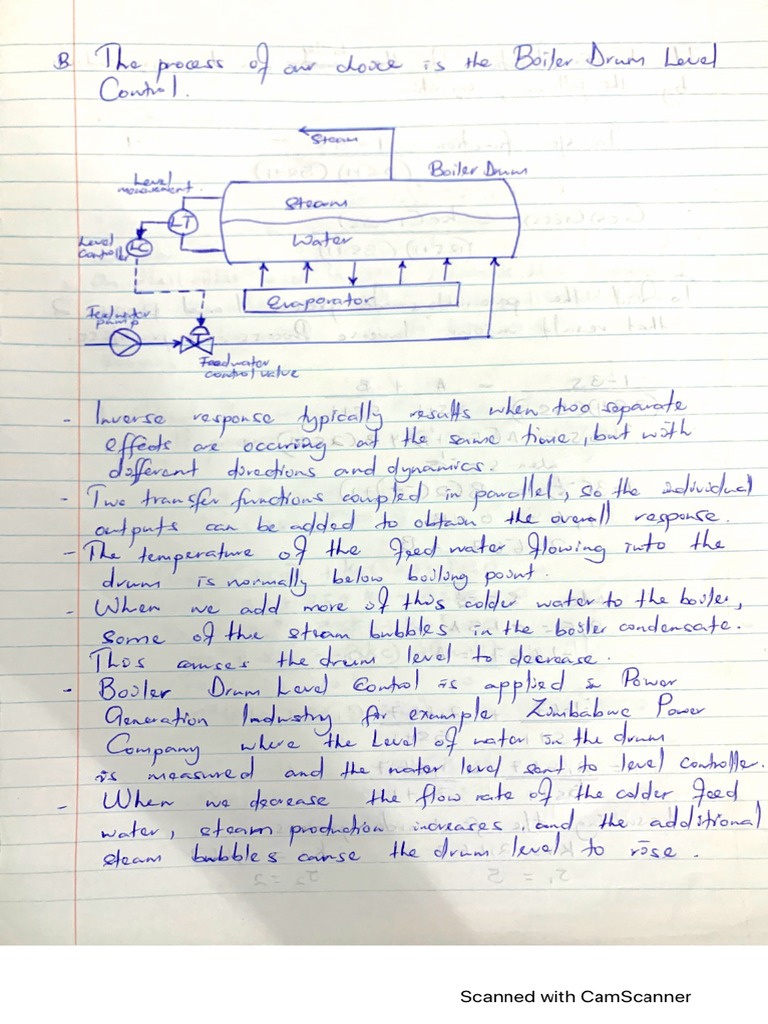 B. The process of our choice is the Boiler Drum Level
Control.
Steam
Boiler Drum
Level
measurement.
Steam
LT
Water
Level
Controller
LC
evaporator
Feedwater
pump
Feedwater
control valve
- Inverse response typically results when two separate
effects are occuring at the same time, but with
different directions and dynamics.
- Two transfer functions coupled in parallel, so the individual
outputs can be added to obtain the overall response.
- The temperature of the feed water flowing into the
drum is normally below boiling point.
- When we add more of this colder water to the boiler,
some of the steam bubbles in the boiler condensate.
This causes the drum level to decrease.
- Boiler Drum Level Control is applied in Power
Generation Industry for example Zimbabwe Power
Company where the Level of water in the drum
is measured and the water level sent to level controller.
- When we decrease the flow rate of the colder feed
water, steam production increases, and the additional
steam bubbles cause the drum level to rise.
Scanned with CamScanner